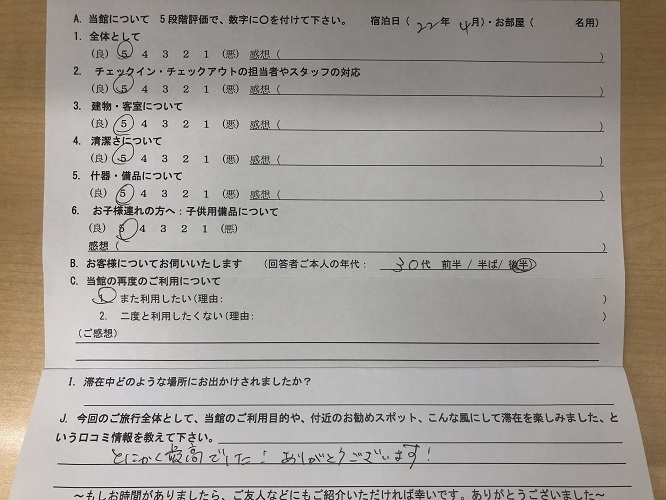 A. 当館について 5段階評価で、数字に〇を付けて下さい。 宿泊日（22年 4月）・お部屋（ 名用）
1. 全体として
（良） 5 4 3 2 1 （悪） 感想（ ）
2. チェックイン・チェックアウトの担当者やスタッフの対応
（良） 5 4 3 2 1 （悪） 感想（ ）
3. 建物・客室について
（良） 5 4 3 2 1 （悪） 感想（ ）
4. 清潔さについて
（良） 5 4 3 2 1 （悪） 感想（ ）
5. 什器・備品について
（良） 5 4 3 2 1 （悪） 感想（ ）
6. お子様連れの方へ：子供用備品について
（良） 5 4 3 2 1 （悪）
感想（ ）
B. お客様についてお伺いいたします （回答者ご本人の年代： 30代 前半 / 半ば/ 後半）
C. 当館の再度のご利用について
1. また利用したい（理由： ）
2. 二度と利用したくない（理由： ）
（ご感想）
I. 滞在中どのような場所にお出かけされましたか？
J. 今回のご旅行全体として、当館のご利用目的や、付近のお勧めスポット、こんな風にして滞在を楽しみました、と
いう口コミ情報を教えて下さい。
とにかく最高でした！ ありがとうございます！
～もしお時間がありましたら、ご友人などにもご紹介いただければ幸いです。ありがとうございました～